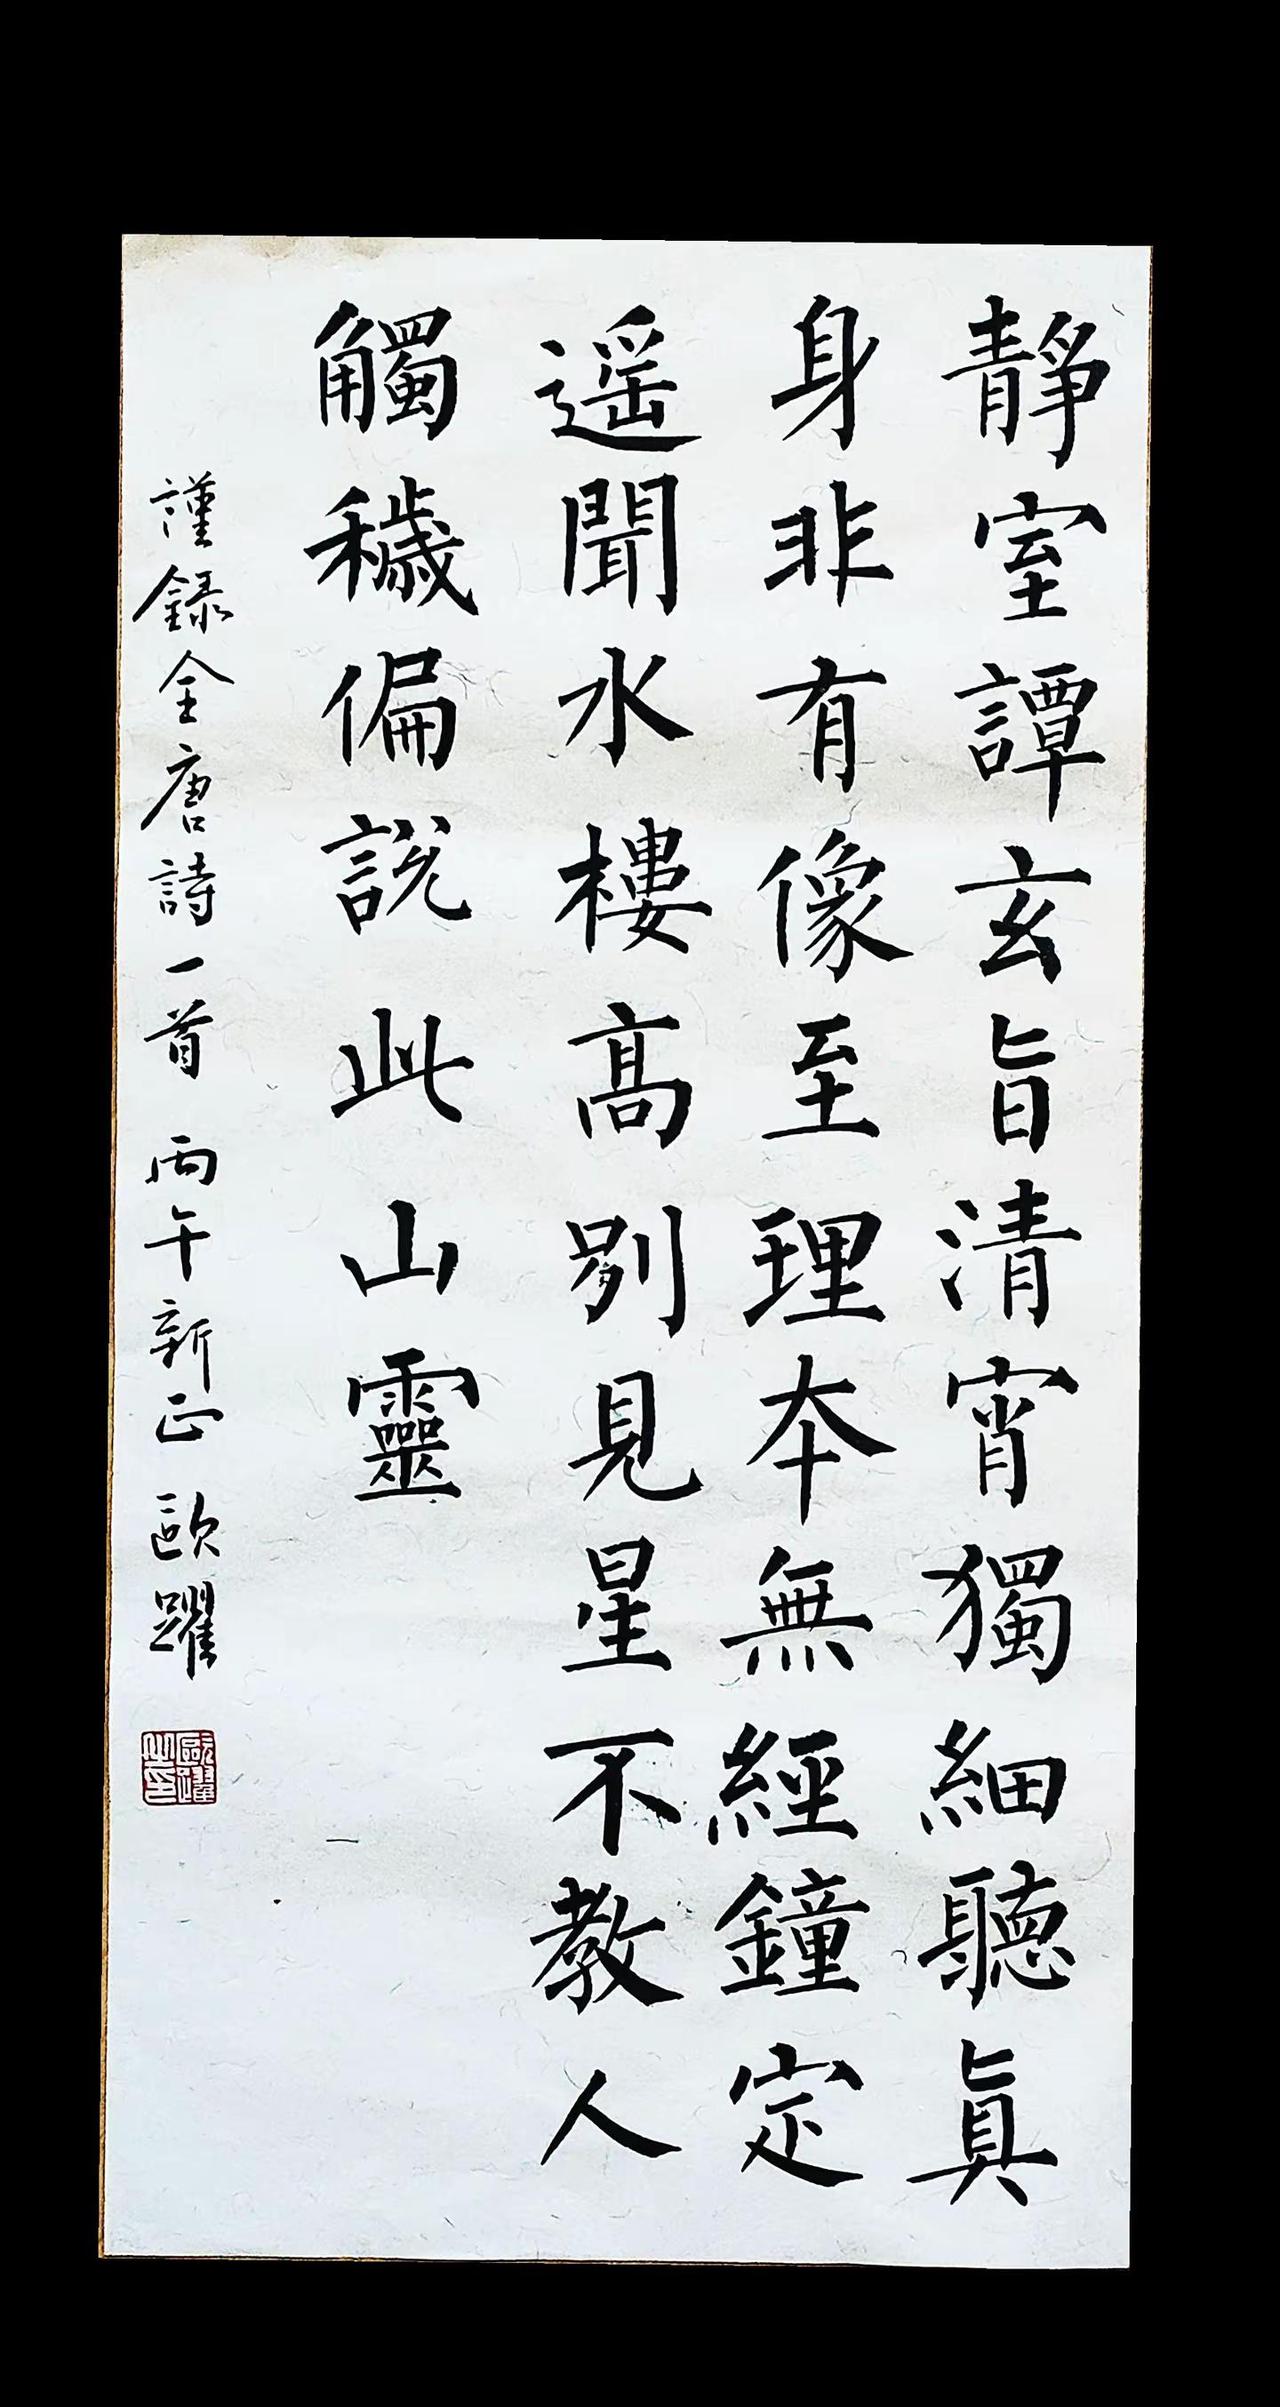 靜室譚玄旨清宵獨細聽真
身非有像至理本無經鐘定
遥聞水樓高別見星不教人
觸穢偏說此山靈
謹録全唐詩一首 丙午新正 歐躍
歐躍之印